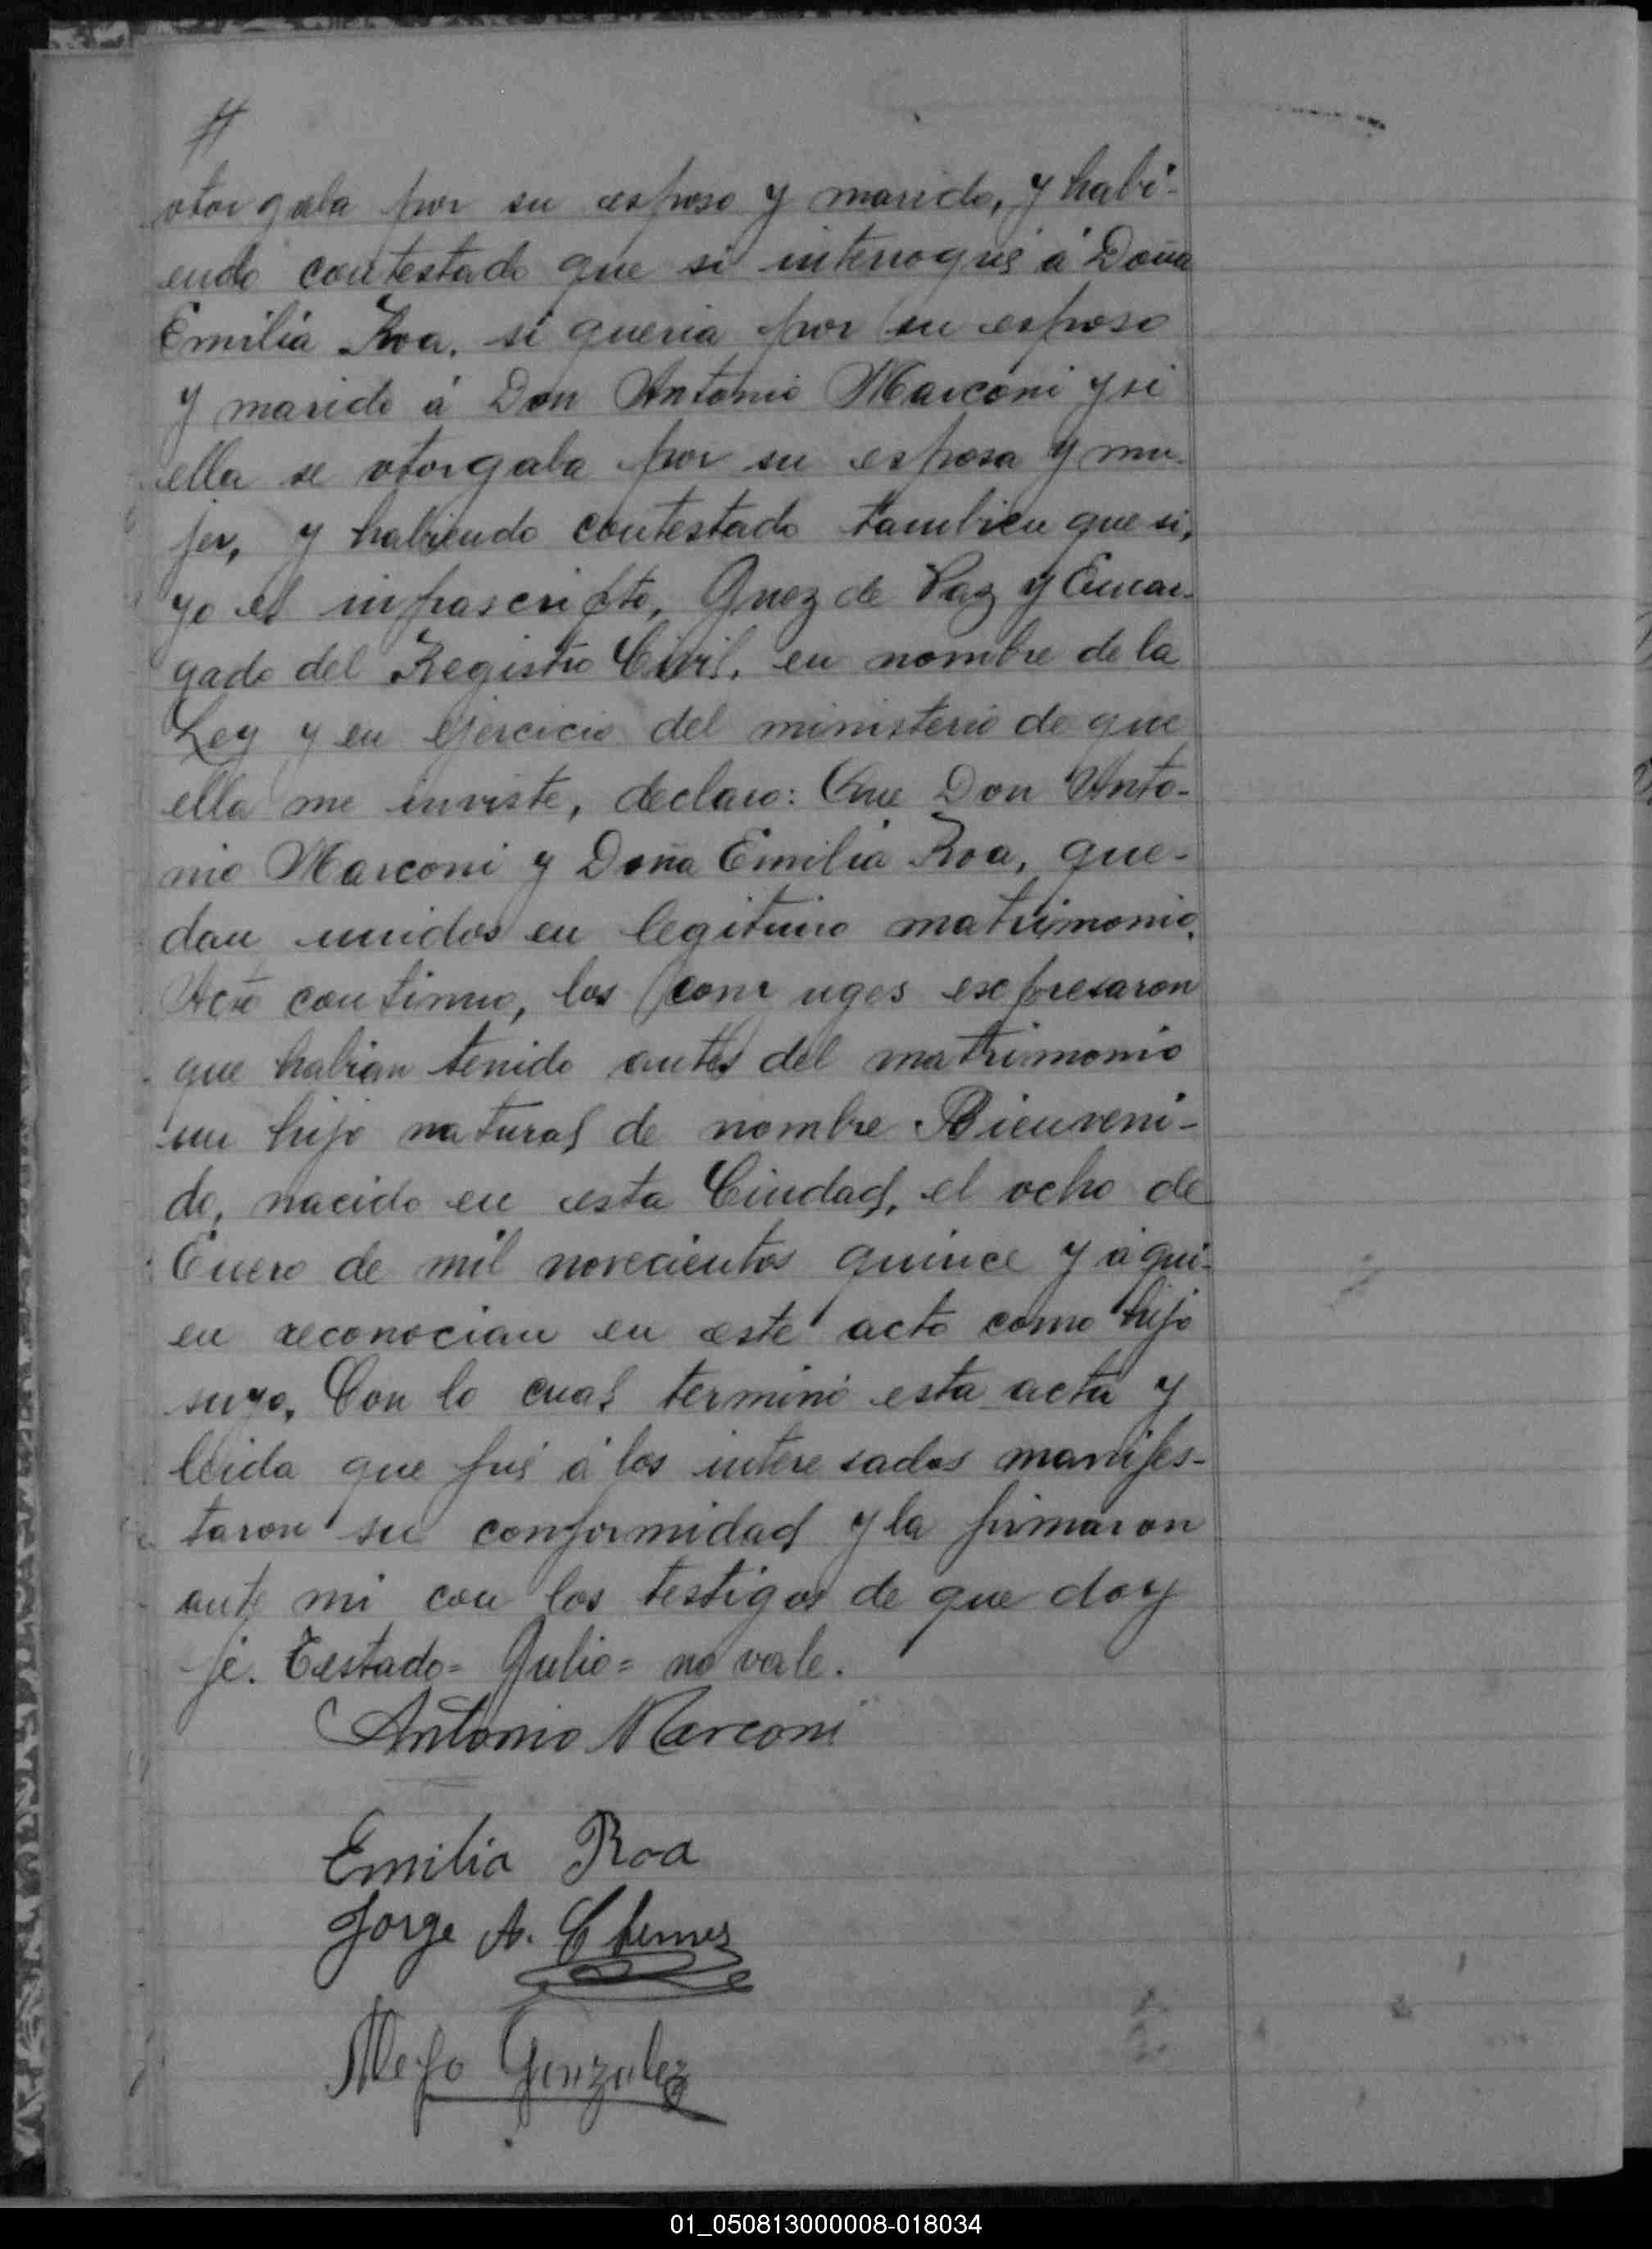 #
otorgaba por su esposo y marido, y habi-
endo contestado que si interrogué á Doña
Emilia Roa, si queria por su esposo
y marido á Don Antonio Marconi y si
ella se otorgaba por su esposa y mu-
jer, y habiendo contestado tambien que si,
yo el infrascripto, Juez de Paz y Encar-
gado del Registro Civil, en nombre de la
Ley y en ejercicio del ministerio de que
ella me inviste, declaro: Que Don Anto-
nio Marconi y Doña Emilia Roa, que-
dan unidos en legitimo matrimonio.
Acto continuo, los conyuges expresaron
que habian tenido antes del matrimonio
un hijo natural de nombre Bienveni-
do, nacido en esta Ciudad, el ocho de
Enero de mil novecientos quince y á qui-
en reconocian en este acto como hijo
suyo. Con lo cual terminó esta acta y
leida que fué á los interesados manifes-
taron su conformidad y la firmaron
ante mi con los testigos de que doy
fé. Testado= Julio= no vale.
Antonio Marconi
Emilia Roa
Jorge A.
Gonzalez
01_050813000008-018034